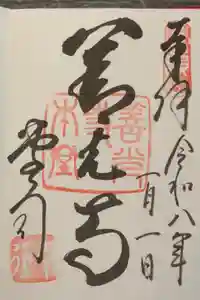 奉拝
令和八年
一月一日
善光寺
善光寺
本堂
堂司